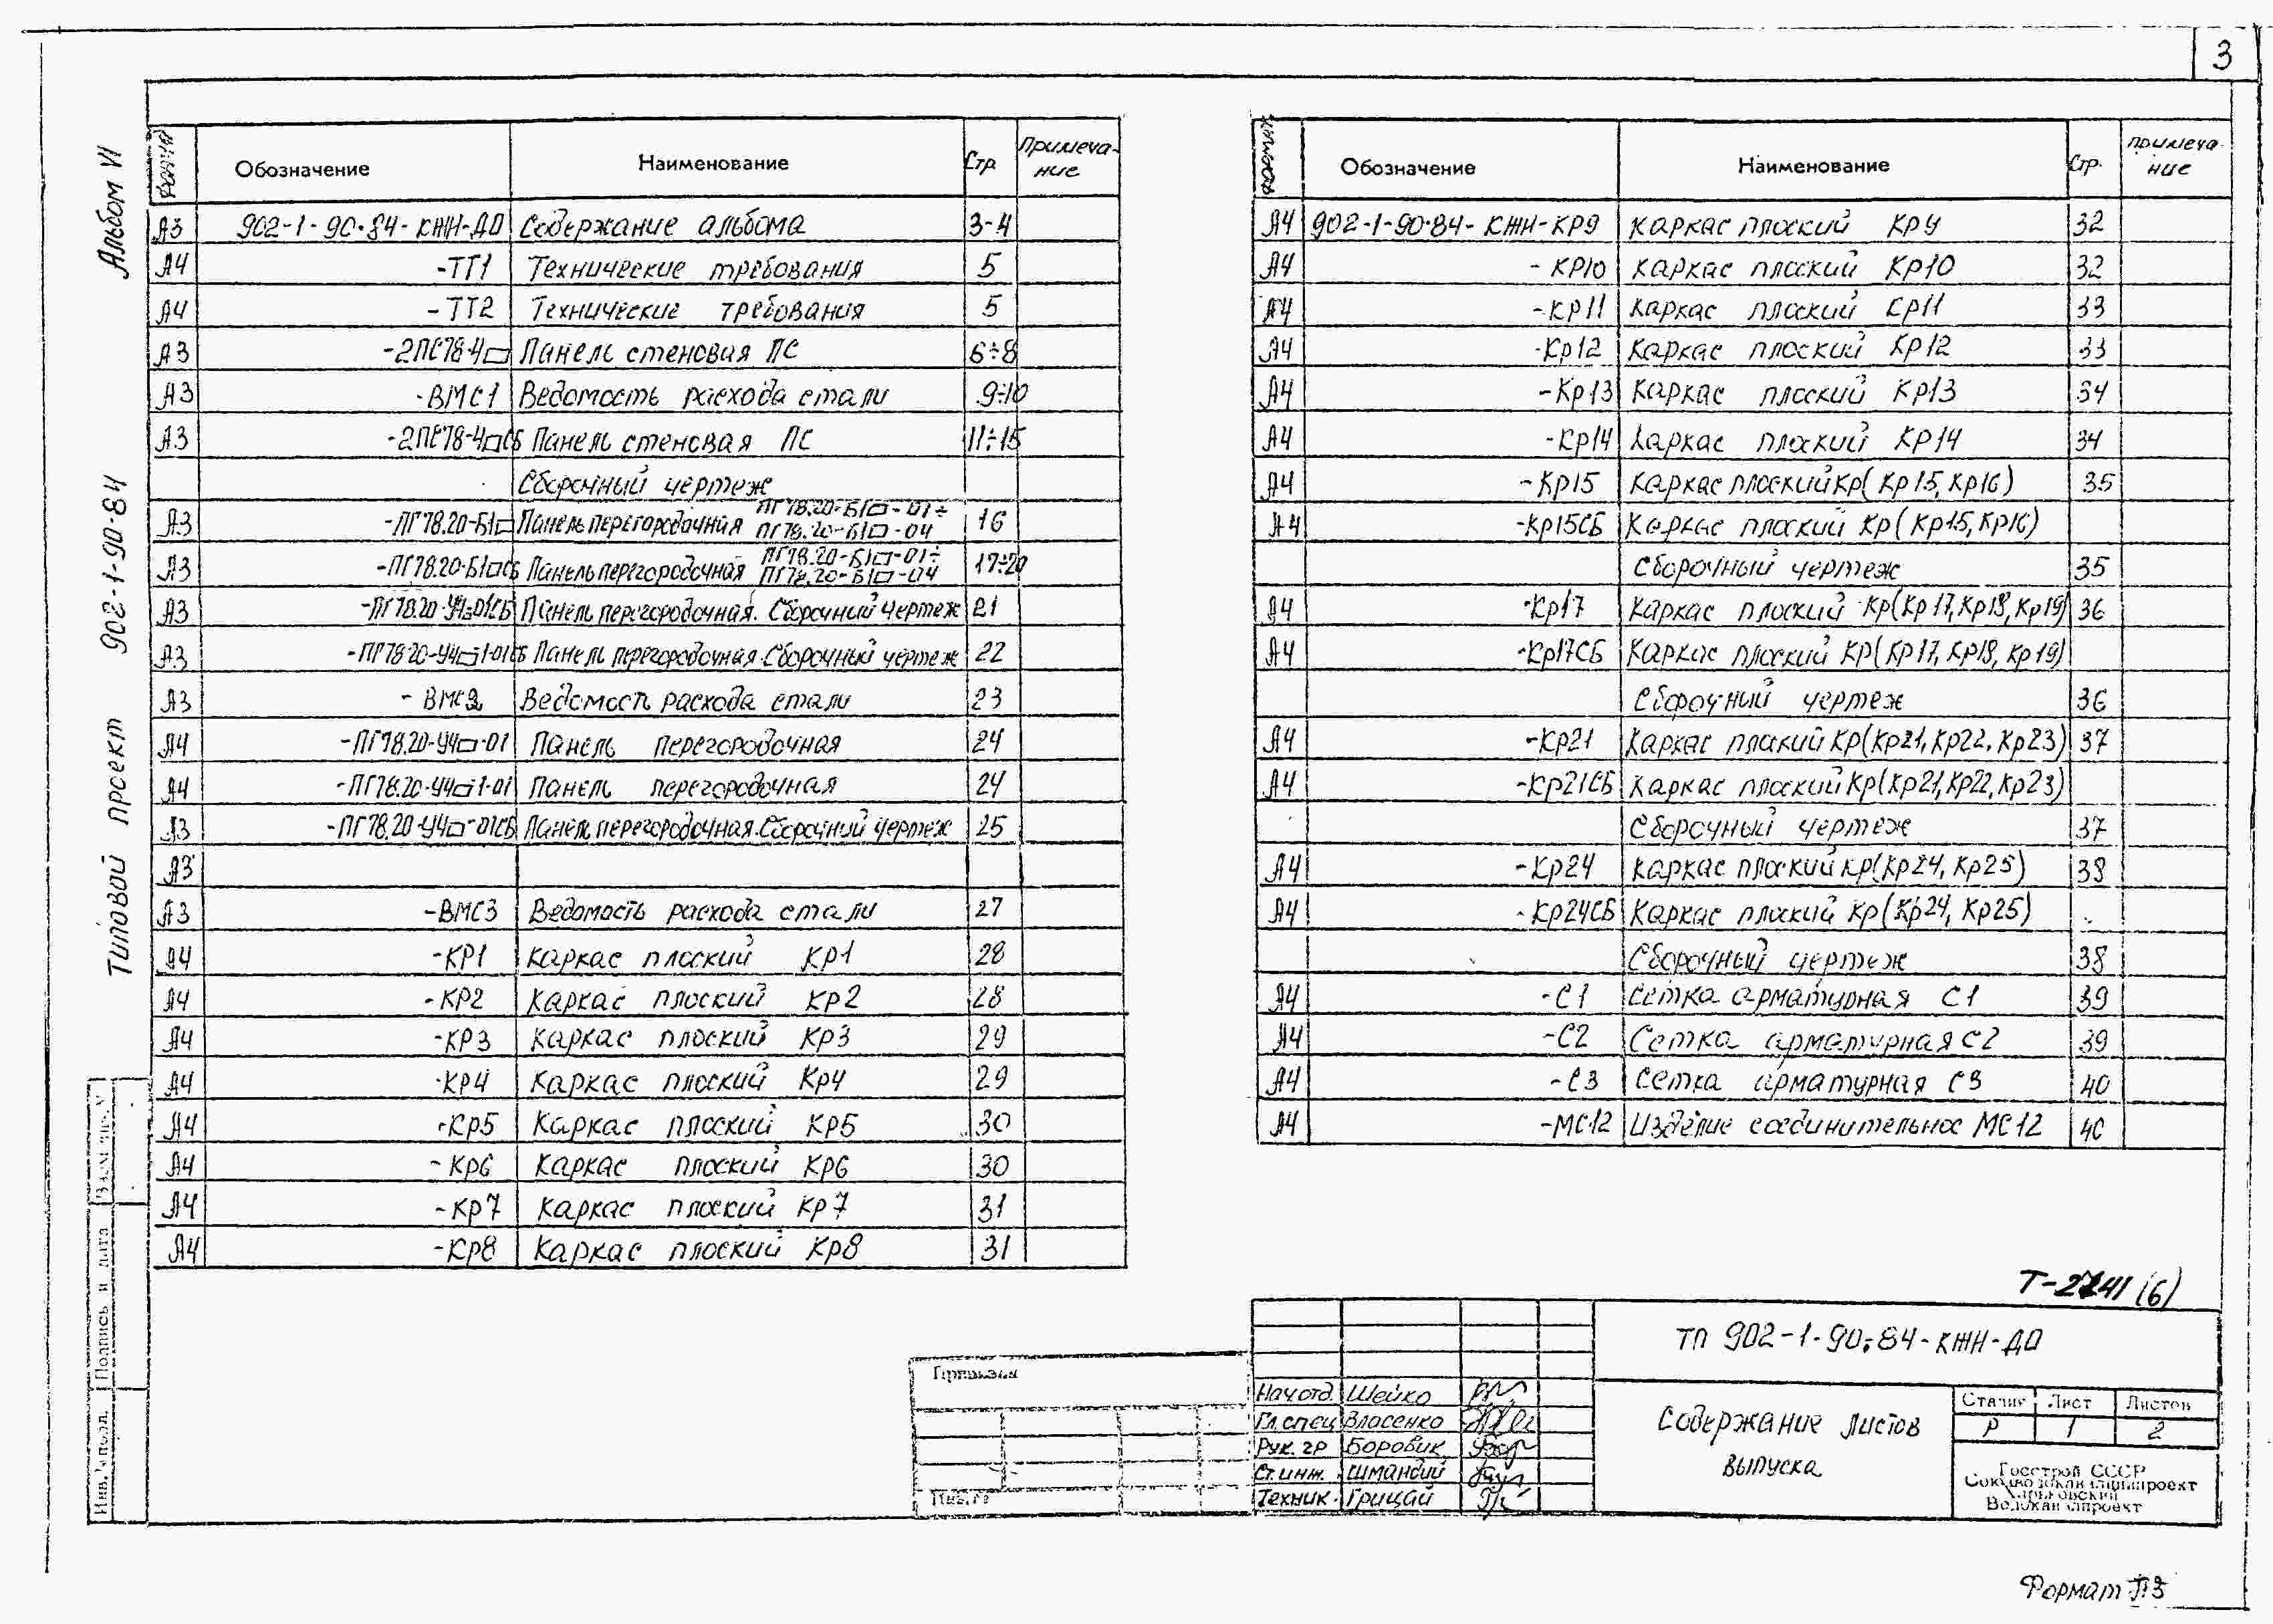 3
Альбом VI
Типовой проект 902-1-90·84
Формат Обозначение Наименование Стр Примеча-
ние
А3 902-1-90·84-КЖН-ДО Содержание альбома 3-4
А4 -ТТ1 Технические требования 5
А4 -ТТ2 Технические требования 5
А3 -2ПС78-4□ Панель стеновая ПС 6÷8
А3 -ВМС1 Ведомость расхода стали 9÷10
А3 -2ПС78-4□СБ Панель стеновая ПС 11÷15
Сборочный чертеж
А3 -ПГ78.20-Б1□ Панель перегородочная ПГ78.20-Б1□-01÷ 16
ПГ78.20-Б1□-04
А3 -ПГ78.20-Б1□СБ Панель перегородочная ПГ78.20-Б1□-01÷ 17÷20
ПГ78.20-Б1□-04
А3 -ПГ78.20-У4□-01СБ Панель перегородочная. Сборочный чертеж 21
А3 -ПГ78·20-У4□1-01СБ Панель перегородочная. Сборочный чертеж 22
А3 - ВМС2 Ведомость расхода стали 23
А4 -ПГ78.20-У4□-01 Панель перегородочная 24
А4 -ПГ78.20-У4□1-01 Панель перегородочная 24
А3 -ПГ78.20-У4□-01СБ Панель перегородочная. Сборочный чертеж 25
А3
А3 -ВМС3 Ведомость расхода стали 27
А4 -КР1 Каркас плоский КР1 28
А4 -КР2 Каркас плоский КР2 28
А4 -КР3 Каркас плоский КР3 29
А4 -КР4 Каркас плоский Кр4 29
А4 -Кр5 Каркас плоский КР5 30
А4 -Кр6 Каркас плоский КР6 30
А4 -Кр7 Каркас плоский Кр7 31
А4 -Кр8 Каркас плоский Кр8 31
Формат Обозначение Наименование Стр. Примеча-
ние
А4 902-1-90·84-КЖН-КР9 Каркас плоский КР9 32
А4 -КР10 Каркас плоский КР10 32
А4 -Кр11 Каркас плоский Кр11 33
А4 -Кр12 Каркас плоский Кр12 33
А4 -Кр13 Каркас плоский Кр13 34
А4 -Кр14 Каркас плоский Кр14 34
А4 -Кр15 Каркас плоский Кр(Кр15, Кр16) 35
А4 -Кр15СБ Каркас плоский Кр(Кр15, Кр16)
Сборочный чертеж 35
А4 -Кр17 Каркас плоский Кр(Кр17, Кр18, Кр19) 36
А4 -Кр17СБ Каркас плоский Кр(Кр17, Кр18, Кр19)
Сборочный чертеж 36
А4 -Кр21 Каркас плоский Кр(Кр21, Кр22, Кр23) 37
А4 -Кр21СБ Каркас плоский Кр(Кр21, Кр22, Кр23)
Сборочный чертеж 37
А4 -Кр24 Каркас плоский Кр(Кр24, Кр25) 38
А4 -Кр24СБ Каркас плоский Кр(Кр24, Кр25)
Сборочный чертеж 38
А4 -С1 Сетка арматурная С1 39
А4 -С2 Сетка арматурная С2 39
А4 -С3 Сетка арматурная С3 40
А4 -МС12 Изделие соединительное МС12 40
Т-2741 (6)
ТП 902-1-90·84-КЖН-ДО
Привязан
Инв.№
Нач отд. Шейко
Гл. спец Власенко
Рук. гр Боровик
Ст. инж. Шмандий
Техник Грицай
Содержание листов
выпуска
Стадия Лист Листов
Р 1 2
Госстрой СССР
Союзводоканалниипроект
Харьковский
Водоканалпроект
Инв.№ подл. Подпись и дата Взам. инв. №
Формат А3